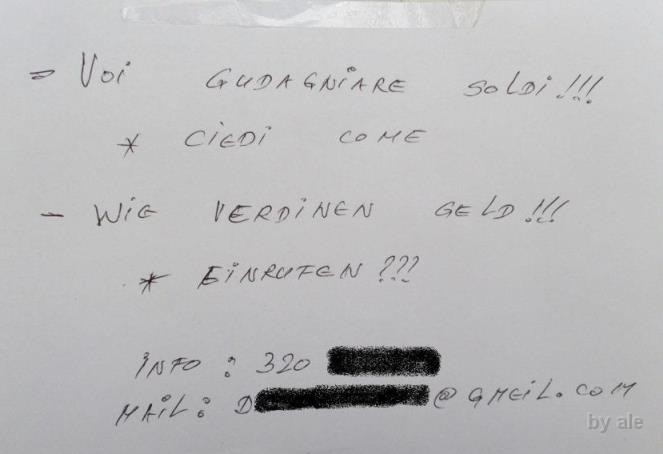 = Voi GUDAGNiARE SOLDi!!!
* CiEDi COME
- WiE VERDiNEN GELD!!!
* EiNRUFEN???
iNFO : 320
MAiL : D @GMEiL.COM
by ale